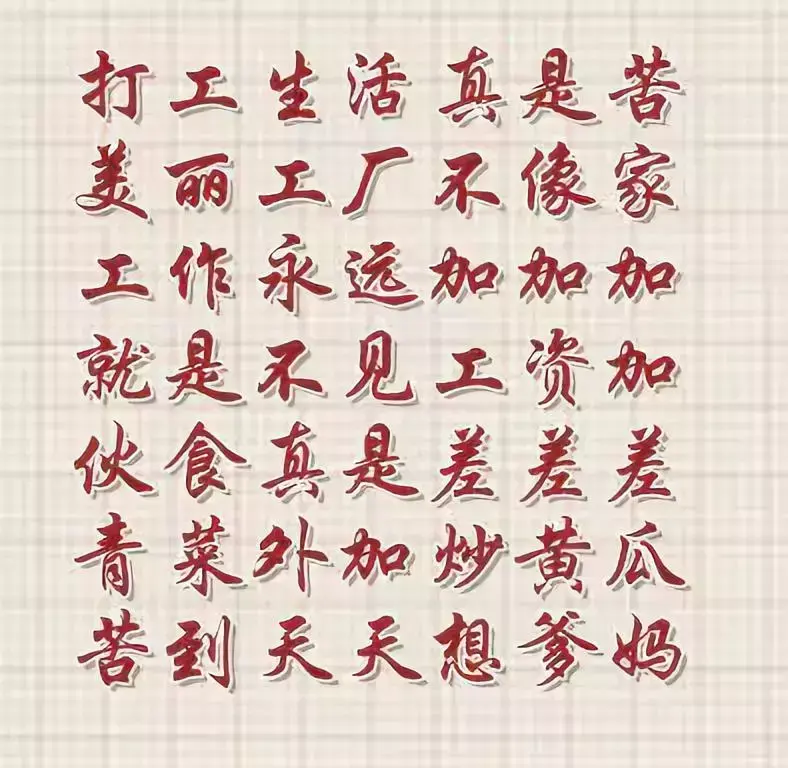 打工生活真是苦
美丽工厂不像家
工作永远加加加
就是不见工资加
伙食真是差差差
青菜外加炒黄瓜
苦到天天想爹妈